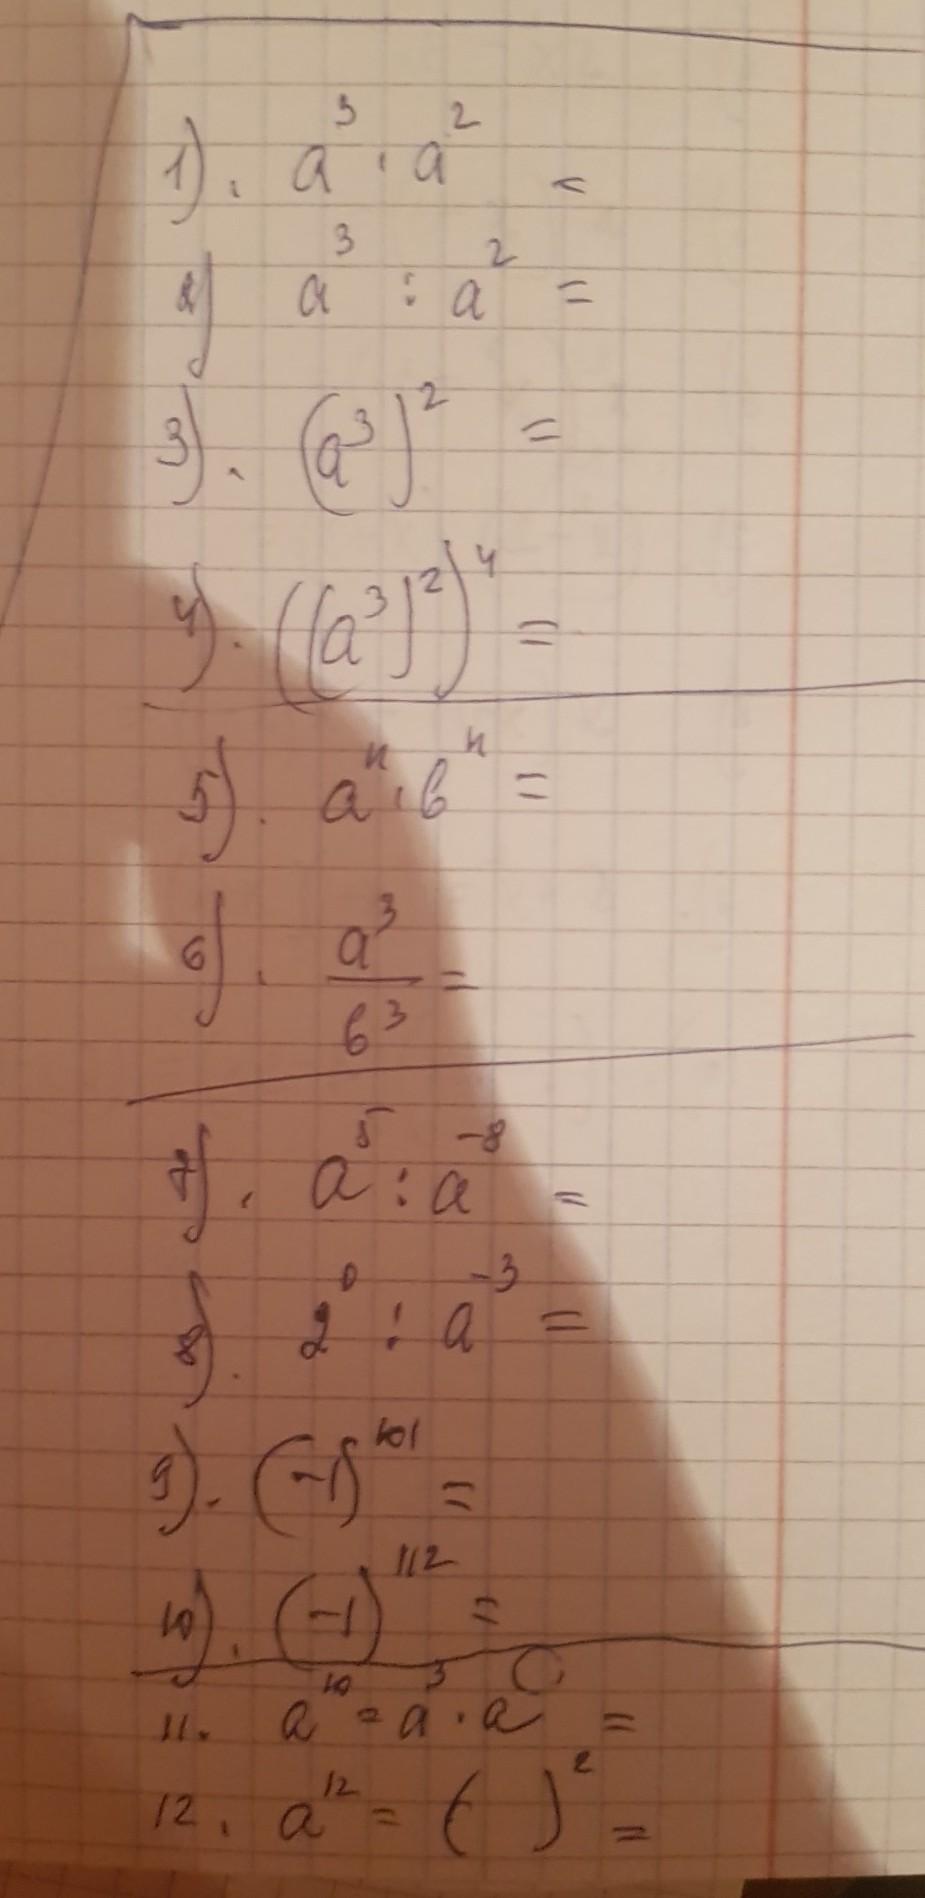 1). a³ · a² =
2) a³ : a² =
3). (a³)² =
4). ((a³)²)⁴ =
5). aⁿ · вⁿ =
6). a³/в³ =
7). a⁵ : a⁻⁸ =
8). 2⁰ : a⁻³ =
9). (-1)¹⁰¹ =
10). (-1)¹¹² =
11. a¹⁰ = a³ · a⁽ ⁾ =
12. a¹² = ( )² =